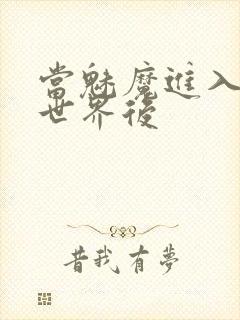 當魅魔進入
世界後
昔我有夢